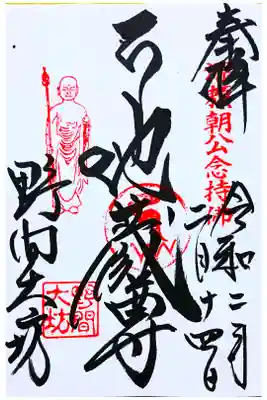 奉拝
頼朝公念持佛
令和二年
二月十四日
地蔵尊
野間大坊
野間
大坊